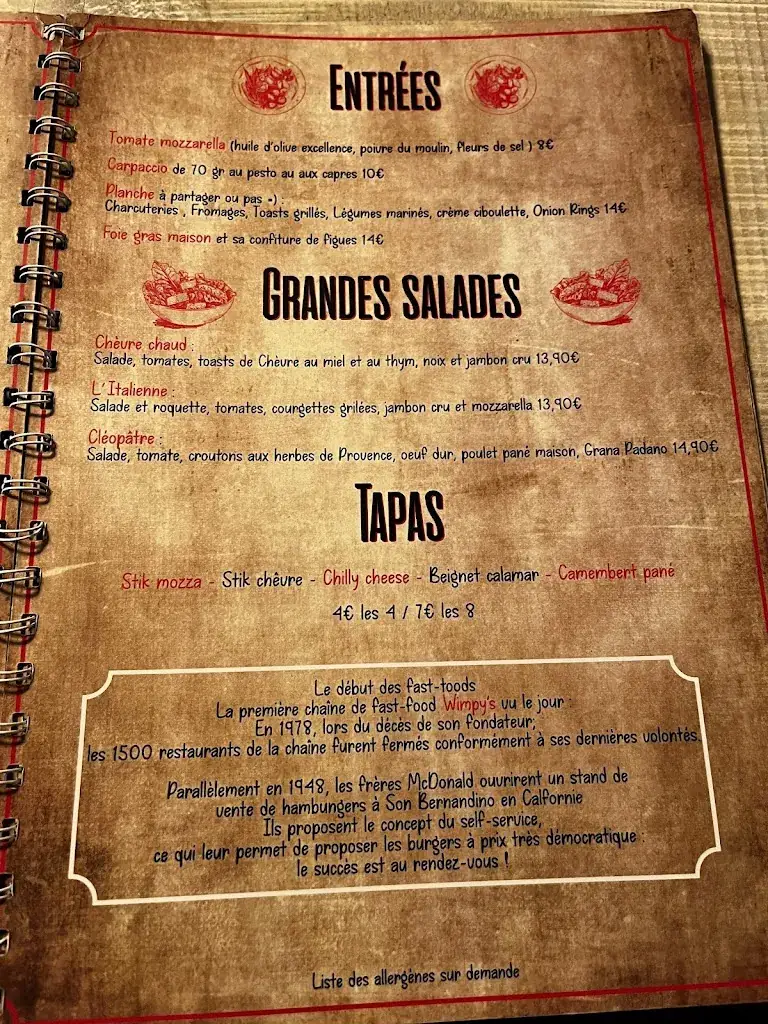 ENTRÉES
Tomate mozzarella (huile d'olive excellence, poivre du moulin, fleurs de sel ) 8€
Carpaccio de 70 gr au pesto au aux capres 10€
Planche à partager ou pas =) :
Charcuteries , Fromages, Toasts grillés, Légumes marinés, crème ciboulette, Onion Rings 14€
Foie gras maison et sa confiture de figues 14€
GRANDES SALADES
Chèvre chaud :
Salade, tomates, toasts de Chèvre au miel et au thym, noix et jambon cru 13,90€
L'Italienne :
Salade et roquette, tomates, courgettes grilées, jambon cru et mozzarella 13,90€
Cléopâtre :
Salade, tomate, croutons aux herbes de Provence, oeuf dur, poulet pané maison, Grana Padano 14,90€
TAPAS
Stik mozza - Stik chêvre - Chilly cheese - Beignet calamar - Camembert pané
4€ les 4 / 7€ les 8
Le début des fast-foods
La première chaîne de fast-food Wimpy's vu le jour :
En 1978, lors du décès de son fondateur,
les 1500 restaurants de la chaîne furent fermés conformément à ses dernières volontés.
Parallèlement en 1948, les frères McDonald ouvrirent un stand de
vente de hamburgers à Son Bernandino en Calfornie
Ils proposent le concept du self-service,
ce qui leur permet de proposer les burgers à prix très démocratique :
le succès est au rendez-vous !
Liste des allergènes sur demande